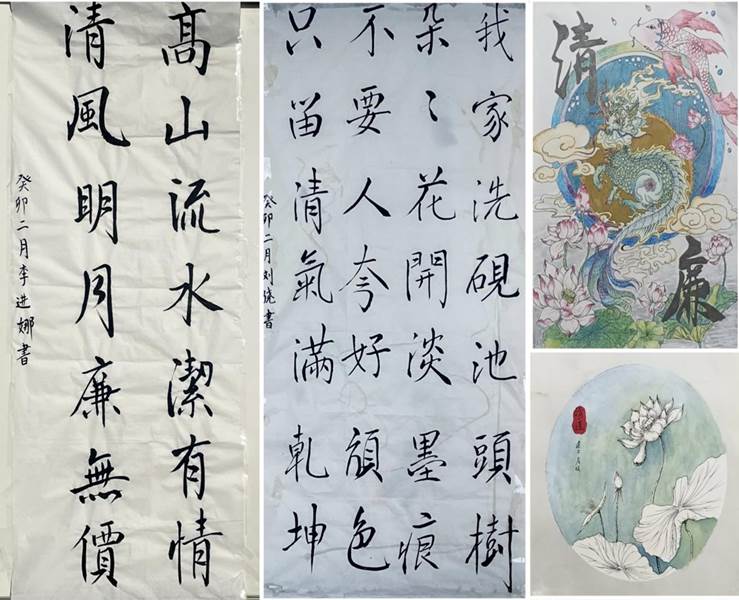 髙山流水潔有情
清風明月廉無價
癸卯二月李进娜書
我家洗硯池頭樹
朵〻花開淡墨痕
不要人夸好顔色
只留清氣滿乾坤
癸卯二月刘書
清
廉